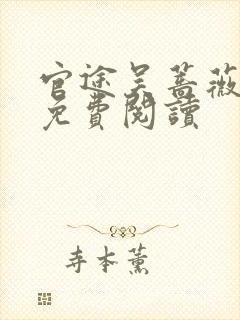 官途吴蔷薇
免費閱讀
寺本薰